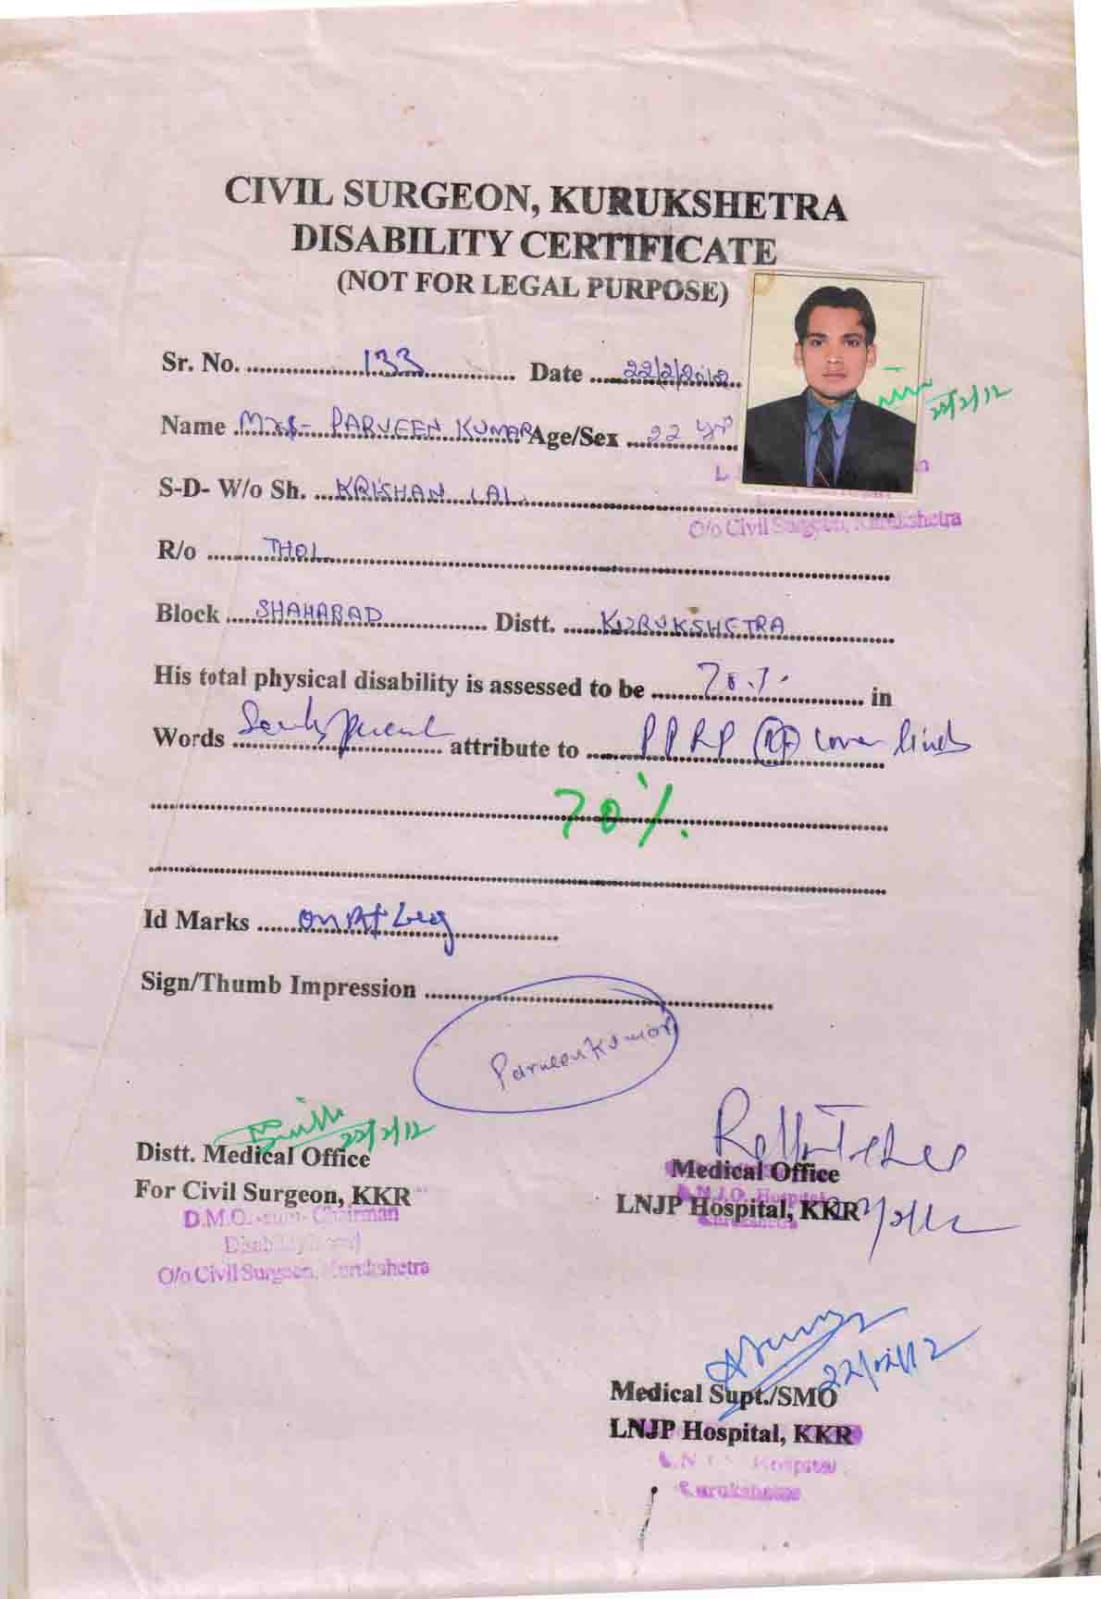 CIVIL SURGEON, KURUKSHETRA
DISABILITY CERTIFICATE
(NOT FOR LEGAL PURPOSE)
Sr. No. 133 Date 22/2/2012
22/2/12
Name PARVEEN KUMAR Age/Sex 22 yrs
S-D- W/o Sh. KRISHAN LAL
O/o Civil Surgeon, Kurukshetra
R/o THOL
Block SHAHABAD Distt. KURUKSHETRA
His total physical disability is assessed to be 70% in
Words attribute to PPRP lower limb
70%
Id Marks on Rt Leg
Sign/Thumb Impression
Parveen Kumar
22/2/12
Distt. Medical Office
For Civil Surgeon, KKR
D.M.O. -cum- Chairman
Disability
O/o Civil Surgeon, Kurukshetra
Medical Office
LNJP Hospital, KKR
L.N.J.P. Hospital
Kurukshetra
22/02/12
Medical Supt./SMO
LNJP Hospital, KKR
Hospital
Kurukshetra